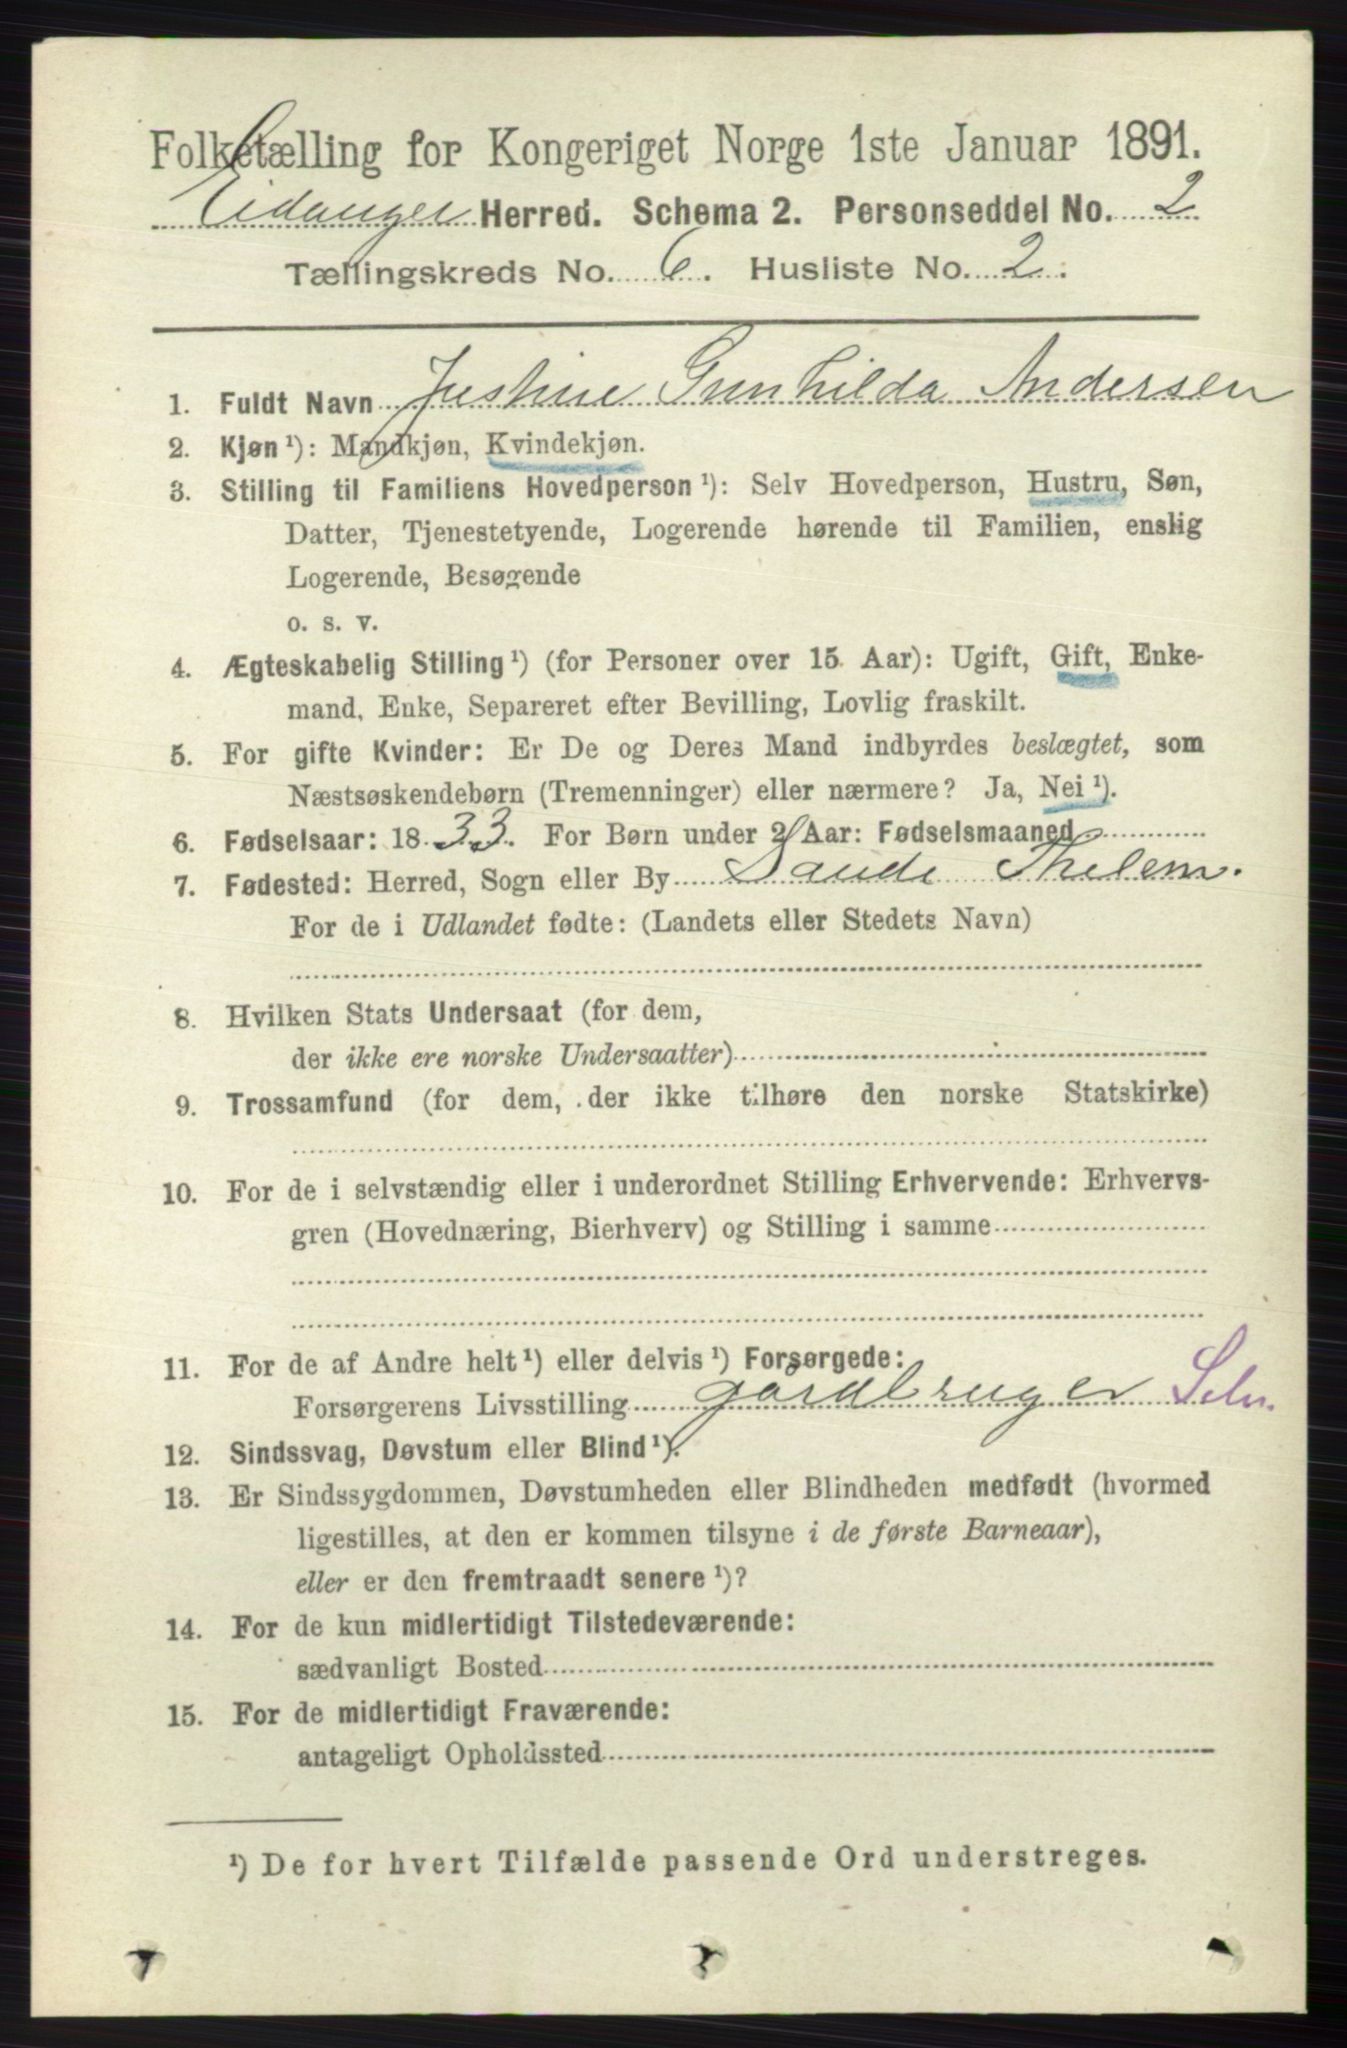 Folketælling for Kongeriget Norge 1ste Januar 1891.
Eidanger Herred. Schema 2. Personseddel No. 2
Tællingskreds No. 6. Husliste No. 2.
1. Fuldt Navn Justine Gunhilda Andersen
2. Kjøn ¹): Mandkjøn, Kvindekjøn.
3. Stilling til Familiens Hovedperson ¹): Selv Hovedperson, Hustru, Søn,
Datter, Tjenestetyende, Logerende hørende til Familien, enslig
Logerende, Besøgende
o. s. v.
4. Ægteskabelig Stilling ¹) (for Personer over 15 Aar): Ugift, Gift, Enke-
mand, Enke, Separeret efter Bevilling, Lovlig fraskilt.
5. For gifte Kvinder: Er De og Deres Mand indbyrdes beslægtet, som
Næstsøskendebørn (Tremenninger) eller nærmere? Ja, Nei ¹).
6. Fødselsaar: 1833. For Børn under 2 Aar: Fødselsmaaned
7. Fødested: Herred, Sogn eller By Saude Thelem.
For de i Udlandet fødte: (Landets eller Stedets Navn)
8. Hvilken Stats Undersaat (for dem,
der ikke ere norske Undersaatter)
9. Trossamfund (for dem, der ikke tilhøre den norske Statskirke)
10. For de i selvstændig eller i underordnet Stilling Erhvervende: Erhvervs-
gren (Hovednæring, Bierhverv) og Stilling i samme
11. For de af Andre helt ¹) eller delvis ¹) Forsørgede:
Forsørgerens Livsstilling gårdbruger Selv.
12. Sindssvag, Døvstum eller Blind ¹).
13. Er Sindssygdommen, Døvstumheden eller Blindheden medfødt (hvormed
ligestilles, at den er kommen tilsyne i de første Barneaar),
eller er den fremtraadt senere ¹)?
14. For de kun midlertidigt Tilstedeværende:
sædvanligt Bosted
15. For de midlertidigt Fraværende:
antageligt Opholdssted
¹) De for hvert Tilfælde passende Ord understreges.